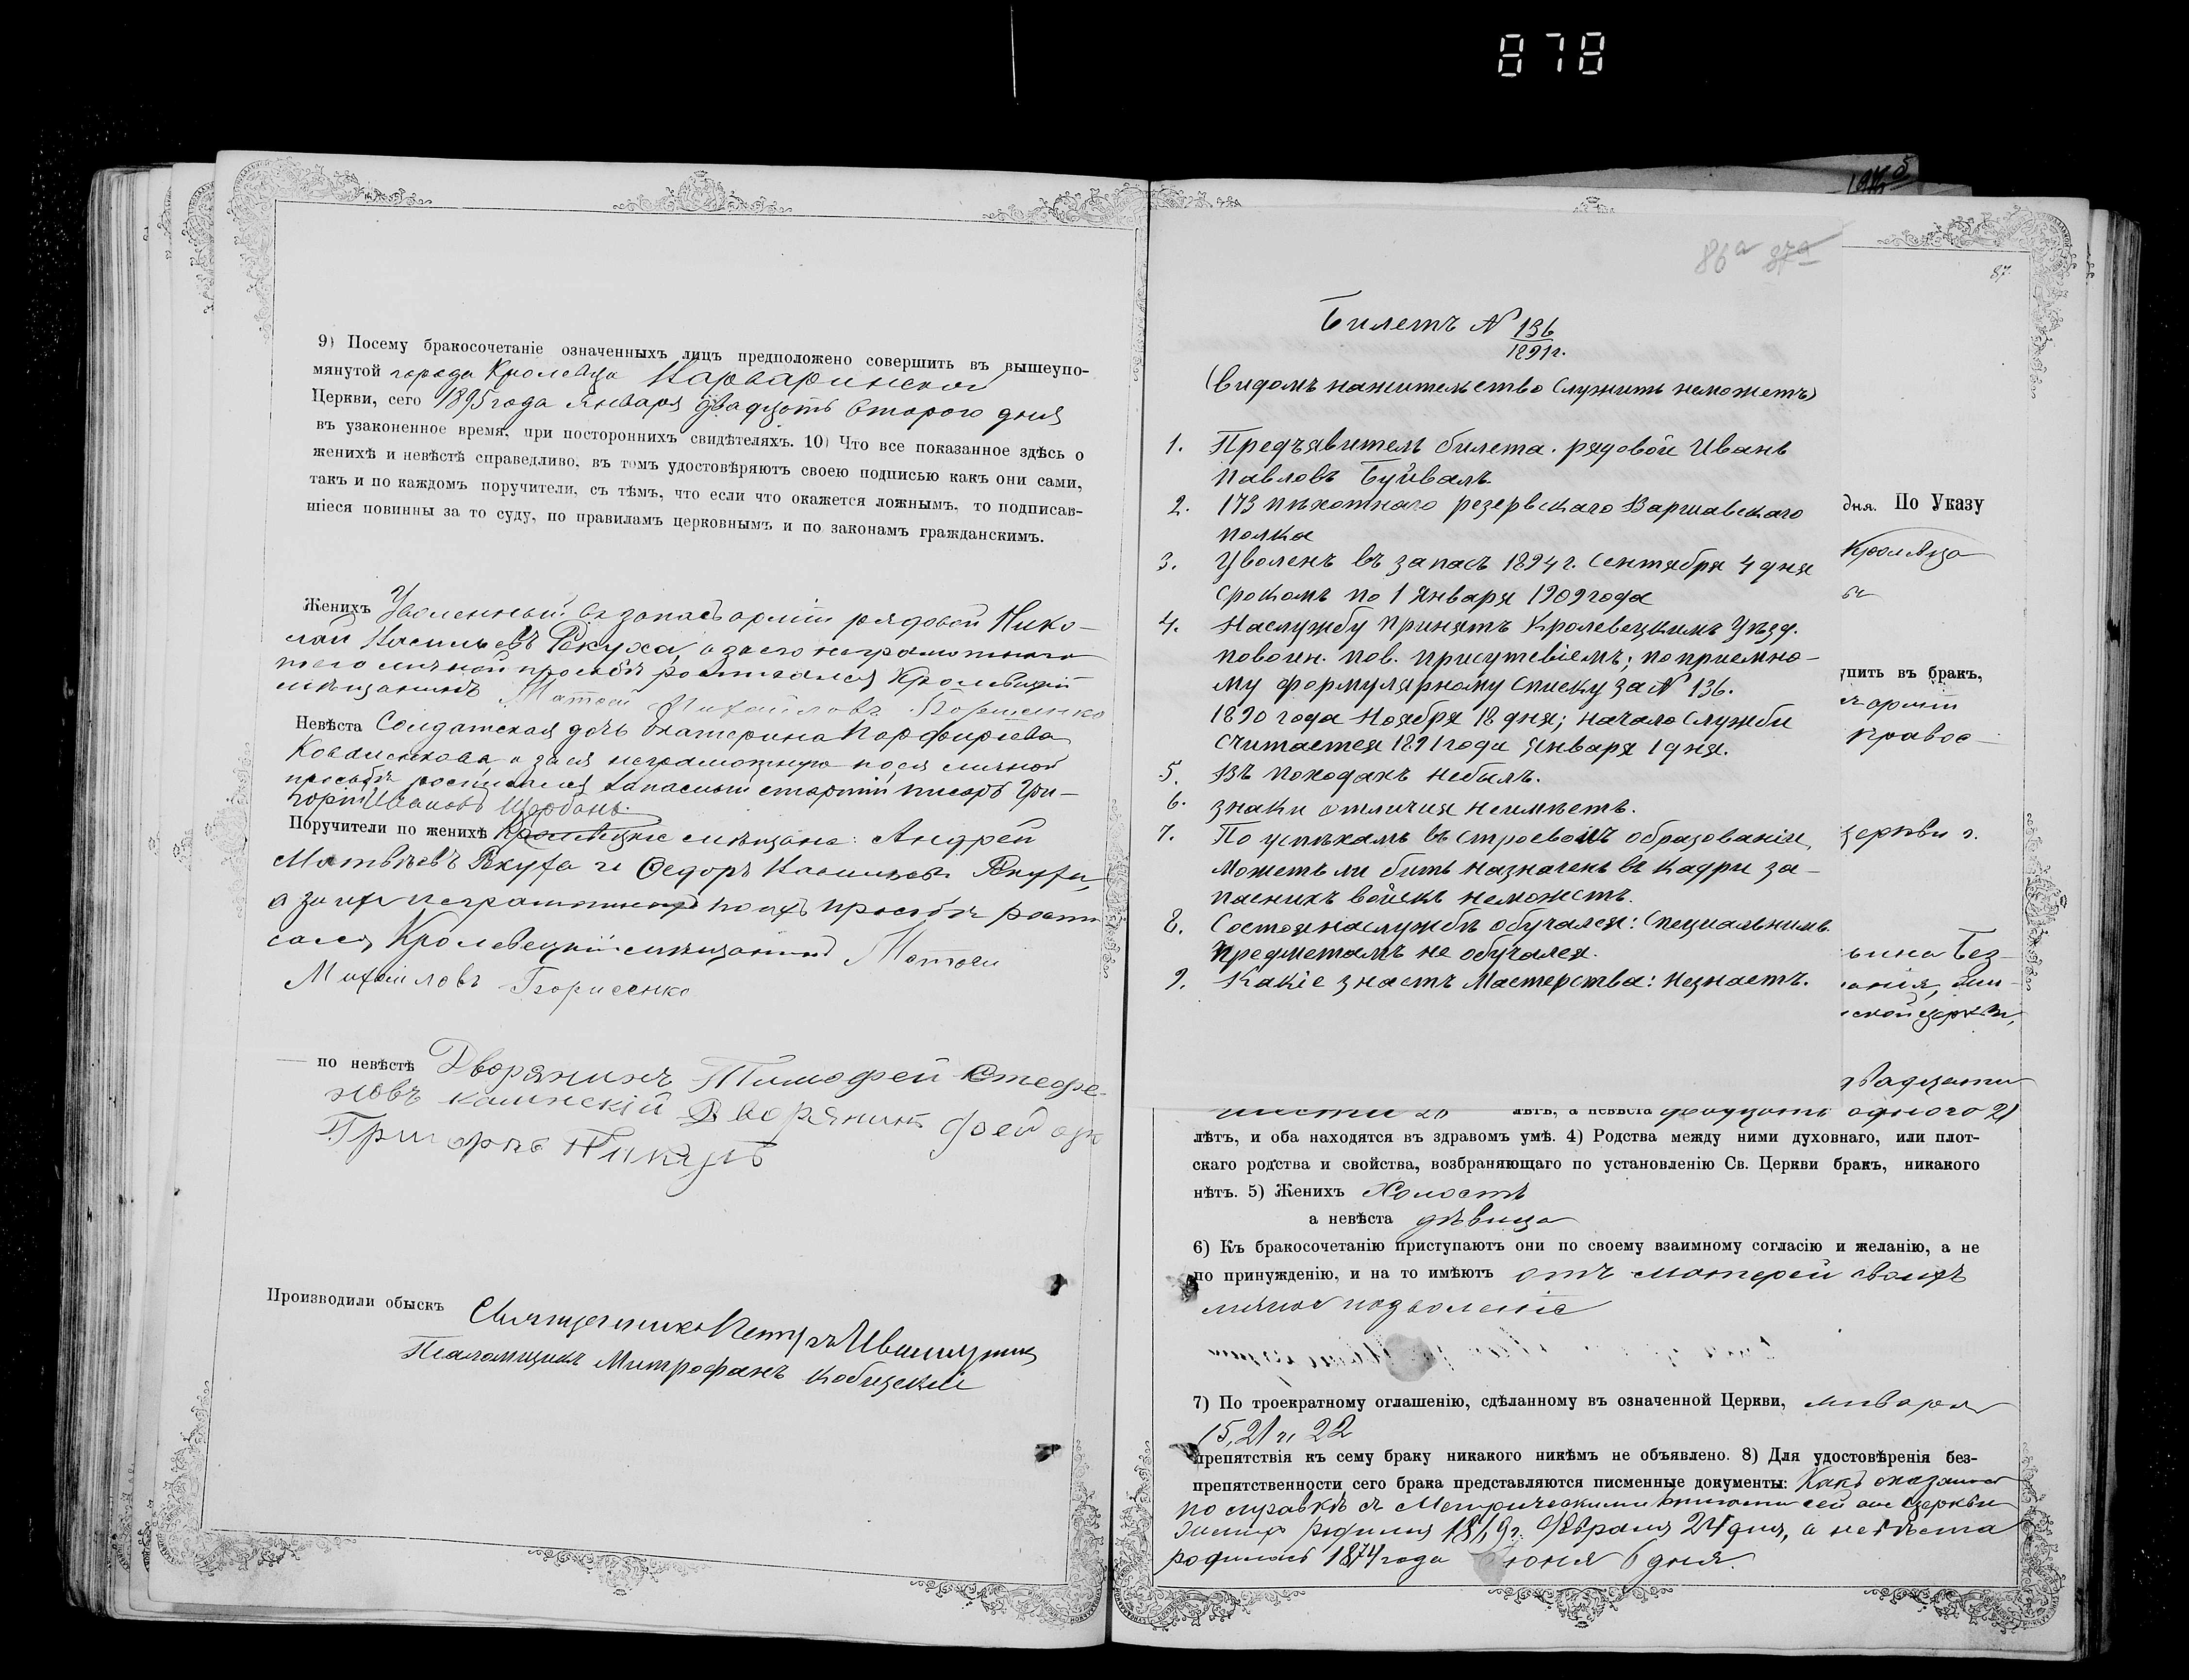 878
9) Посему бракосочетаніе означенныхъ лицъ предположено совершить въ вышеупо-
мянутой города Кролевца Варваринской
Церкви, сего 1895 года Января двадцать второго дня
въ узаконенное время, при постороннихъ свидѣтеляхъ. 10) Что все показанное здѣсь о
женихѣ и невѣстѣ справедливо, въ томъ удостовѣряютъ своею подписью какъ они сами,
такъ и по каждомъ поручители, съ тѣмъ, что если что окажется ложнымъ, то подписав-
шіеся повинны за то суду, по правиламъ церковнымъ и по законамъ гражданскимъ.
Женихъ Уволенный въ запасъ арміи рядовой Нико-
лай Васильевъ Рекуха, а за его неграмотнаго
по его личной просьбѣ росписался Кролевецкій
мѣщанинъ Матвей Михайловъ Борисенко
Невѣста Солдатская дочь Екатерина Порфиріева
Коваленкова а за ея неграмотную по ея личной
просьбѣ росписался запасный старшій писарь Гри-
горій Ивановъ Щербань.
Поручители по женихѣ Кролевецкіе мѣщане: Андрей
Матвѣевъ Рекуха и Ѳедоръ Васильевъ Рекуха,
а за ихъ неграмотныхъ по ихъ просьбѣ роспи
сался Кролевецкій мѣщанинъ Матвей
Михайловъ Борисенко
по невѣстѣ Дворянинъ Тимофей Стефа-
новъ Дворянинъ
Григоръ Пикуль
Производили обыскъ Священникъ Петръ
Псаломщикъ Митрофанъ Кобищскій
86а 87а
87
Билетъ № 136
1891 г.
(Видомъ нажительство служить неможетъ)
1. Предъявитель билета. рядовой Иванъ
Павловъ Буйвалъ.
2. 173 пихотнаго резервскаго Варшавскаго
полка
3. Уволенъ въ запасъ 1894 г. Сентября 4 дня
срокомъ по 1 Января 1909 года
4. Наслужбу принятъ Кролевецкимъ Уѣзд.
повоин. пов. присутсвіемъ; поприемно-
му формулярному списку за № 136.
1890 года Ноября 18 дня; начало службы
считается 1891 года Января 1 дня.
5. Въ походахъ небылъ.
6. знаки отличия неимѣетъ.
7. По успѣхамъ въ строевомъ образованіи,
можетъ ли быть назначенъ въ кадры за-
пасныхъ войскъ неможетъ.
8. Состоя наслужбѣ обучался: Специальнимъ
предметамъ не обучался.
9. Какіе знаетъ Мастерства: Незнаетъ.
дня. По Указу
Кролевца
упить въ бракъ,
арміи
правос-
церкви г.
ской церкви,
двадцати
лѣтъ, а невѣста двадцать одного 21
лѣтъ, и оба находятся въ здравомъ умѣ. 4) Родства между ними духовнаго, или плот-
скаго родства и свойства, возбраняющаго по установленію Св. Церкви бракъ, никакого
нѣтъ. 5) Женихъ Холостъ
а невѣста дѣвица
6) Къ бракосочетанію приступаютъ они по своему взаимному согласію и желанію, а не
по принужденію, и на то имѣютъ отъ матерей своихъ
личное позволеніе
7) По троекратному оглашенію, сдѣланному въ означенной Церкви, января
15, 21 и 22
препятствія къ сему браку никакого никѣмъ не объявлено. 8) Для удостовѣренія без-
препятственности сего брака представляются писменные документы: Какъ оказалось
по справкѣ съ Метрическими книгами сей церкви
женихъ родился 1869 г. Февраля 24 дня, а невѣста
родилась 1874 года Іюня 6 дня.